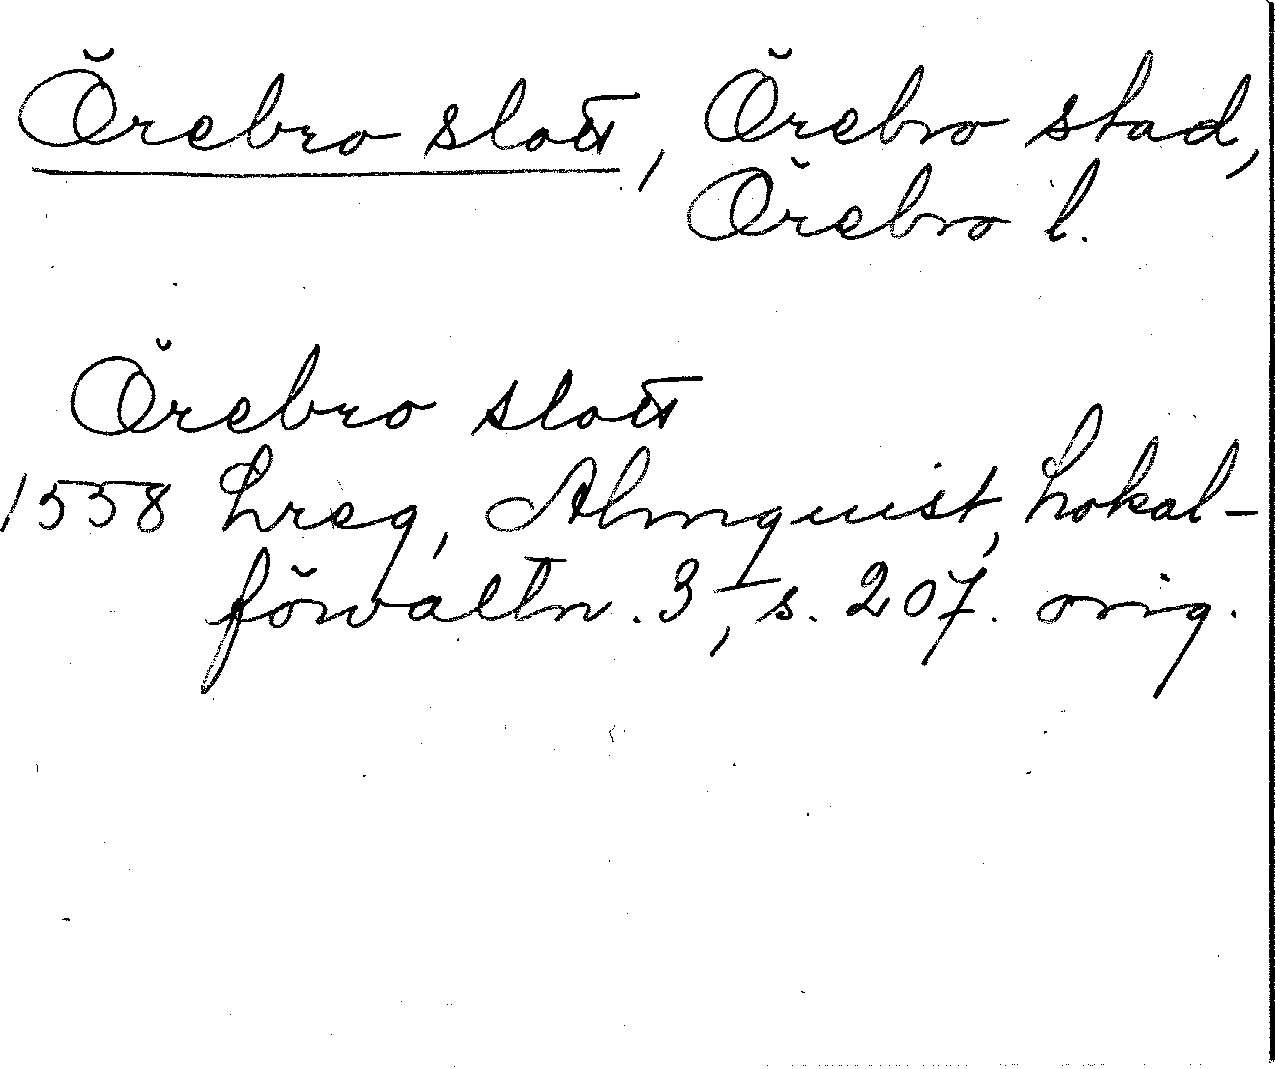 Örebro slott, Örebro stad,
Örebro l.
Örebro slott
1558 Lreg, Almquist, Lokal-
förvaltn. 3, s. 207. orig.